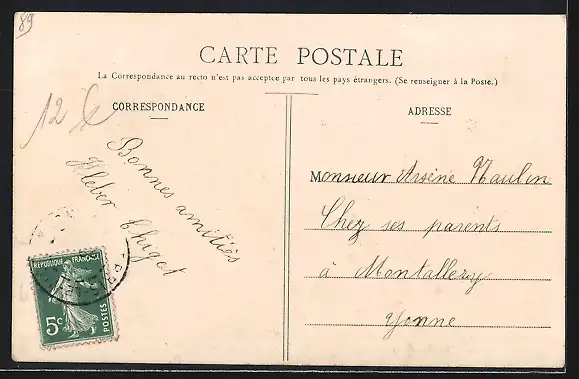 89
CARTE POSTALE
La Correspondance au recto n'est pas acceptée par tous les pays étrangers. (Se renseigner à la Poste.)
CORRESPONDANCE
12
Bonnes amitiés
Kleber Chigot
RÉPUBLIQUE FRANÇAISE
5c
POSTES
ADRESSE
Monsieur Arsène Naulin
Chez ses parents
à Montallery
Yonne